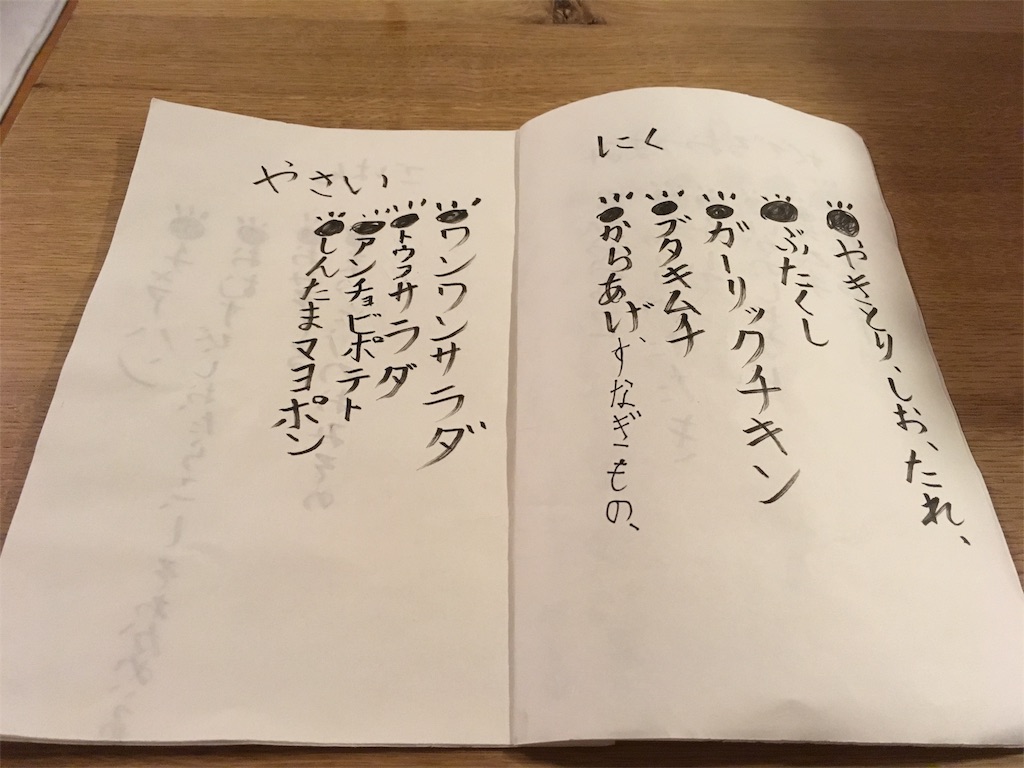 にく
やきとり、しお、たれ、
ぶたくし
ガーリックチキン
ブタキムチ
からあげ、すなぎもの、
やさい
ワンワンサラダ
トウフサラダ
アンチョビポテト
しんたまマヨポン